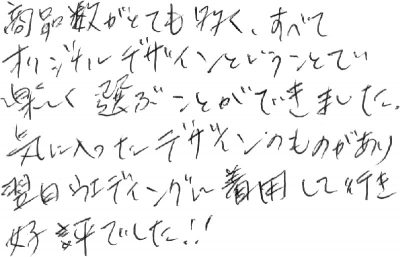 商品数がとても多く、すべて
オリジナルデザインということで
楽しく選ぶことができました。
気に入ったデザインのものがあり
翌日ウエディングに着用して行き
好評でした!!